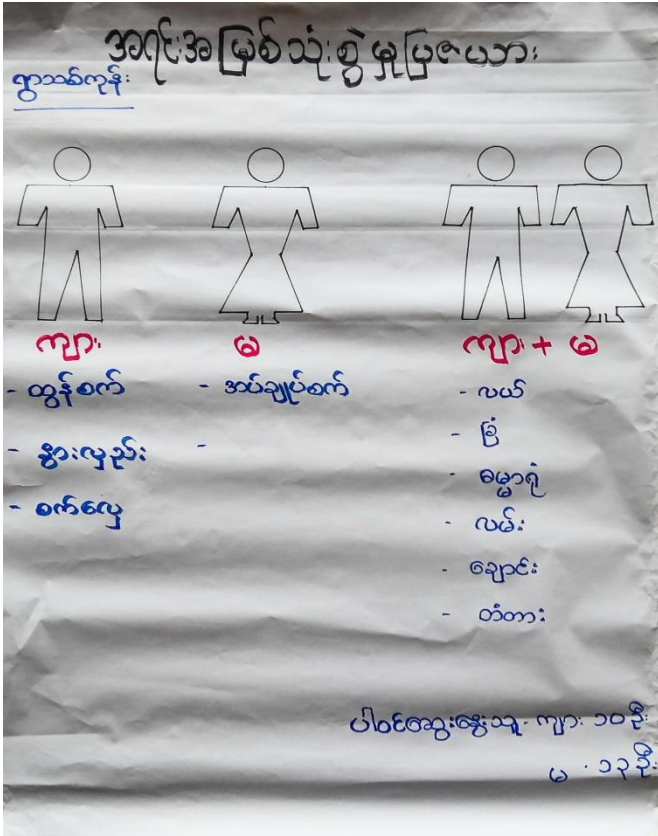 အရင်းအမြစ်သုံးစွဲမှုပြဇယား
ရွာသစ်ကုန်း
ကျား
မ
ကျား + မ
- ထွန်စက်
- နွားလှည်း
- စက်လှေ
- အပ်ချုပ်စက်
-
- လယ်
- ခြံ
- ဓမ္မာရုံ
- လမ်း
- ချောင်း
- တံတား
ပါဝင်ဆွေးနွေးသူ - ကျား ၁၀ ဦး
မ - ၁၃ ဦး